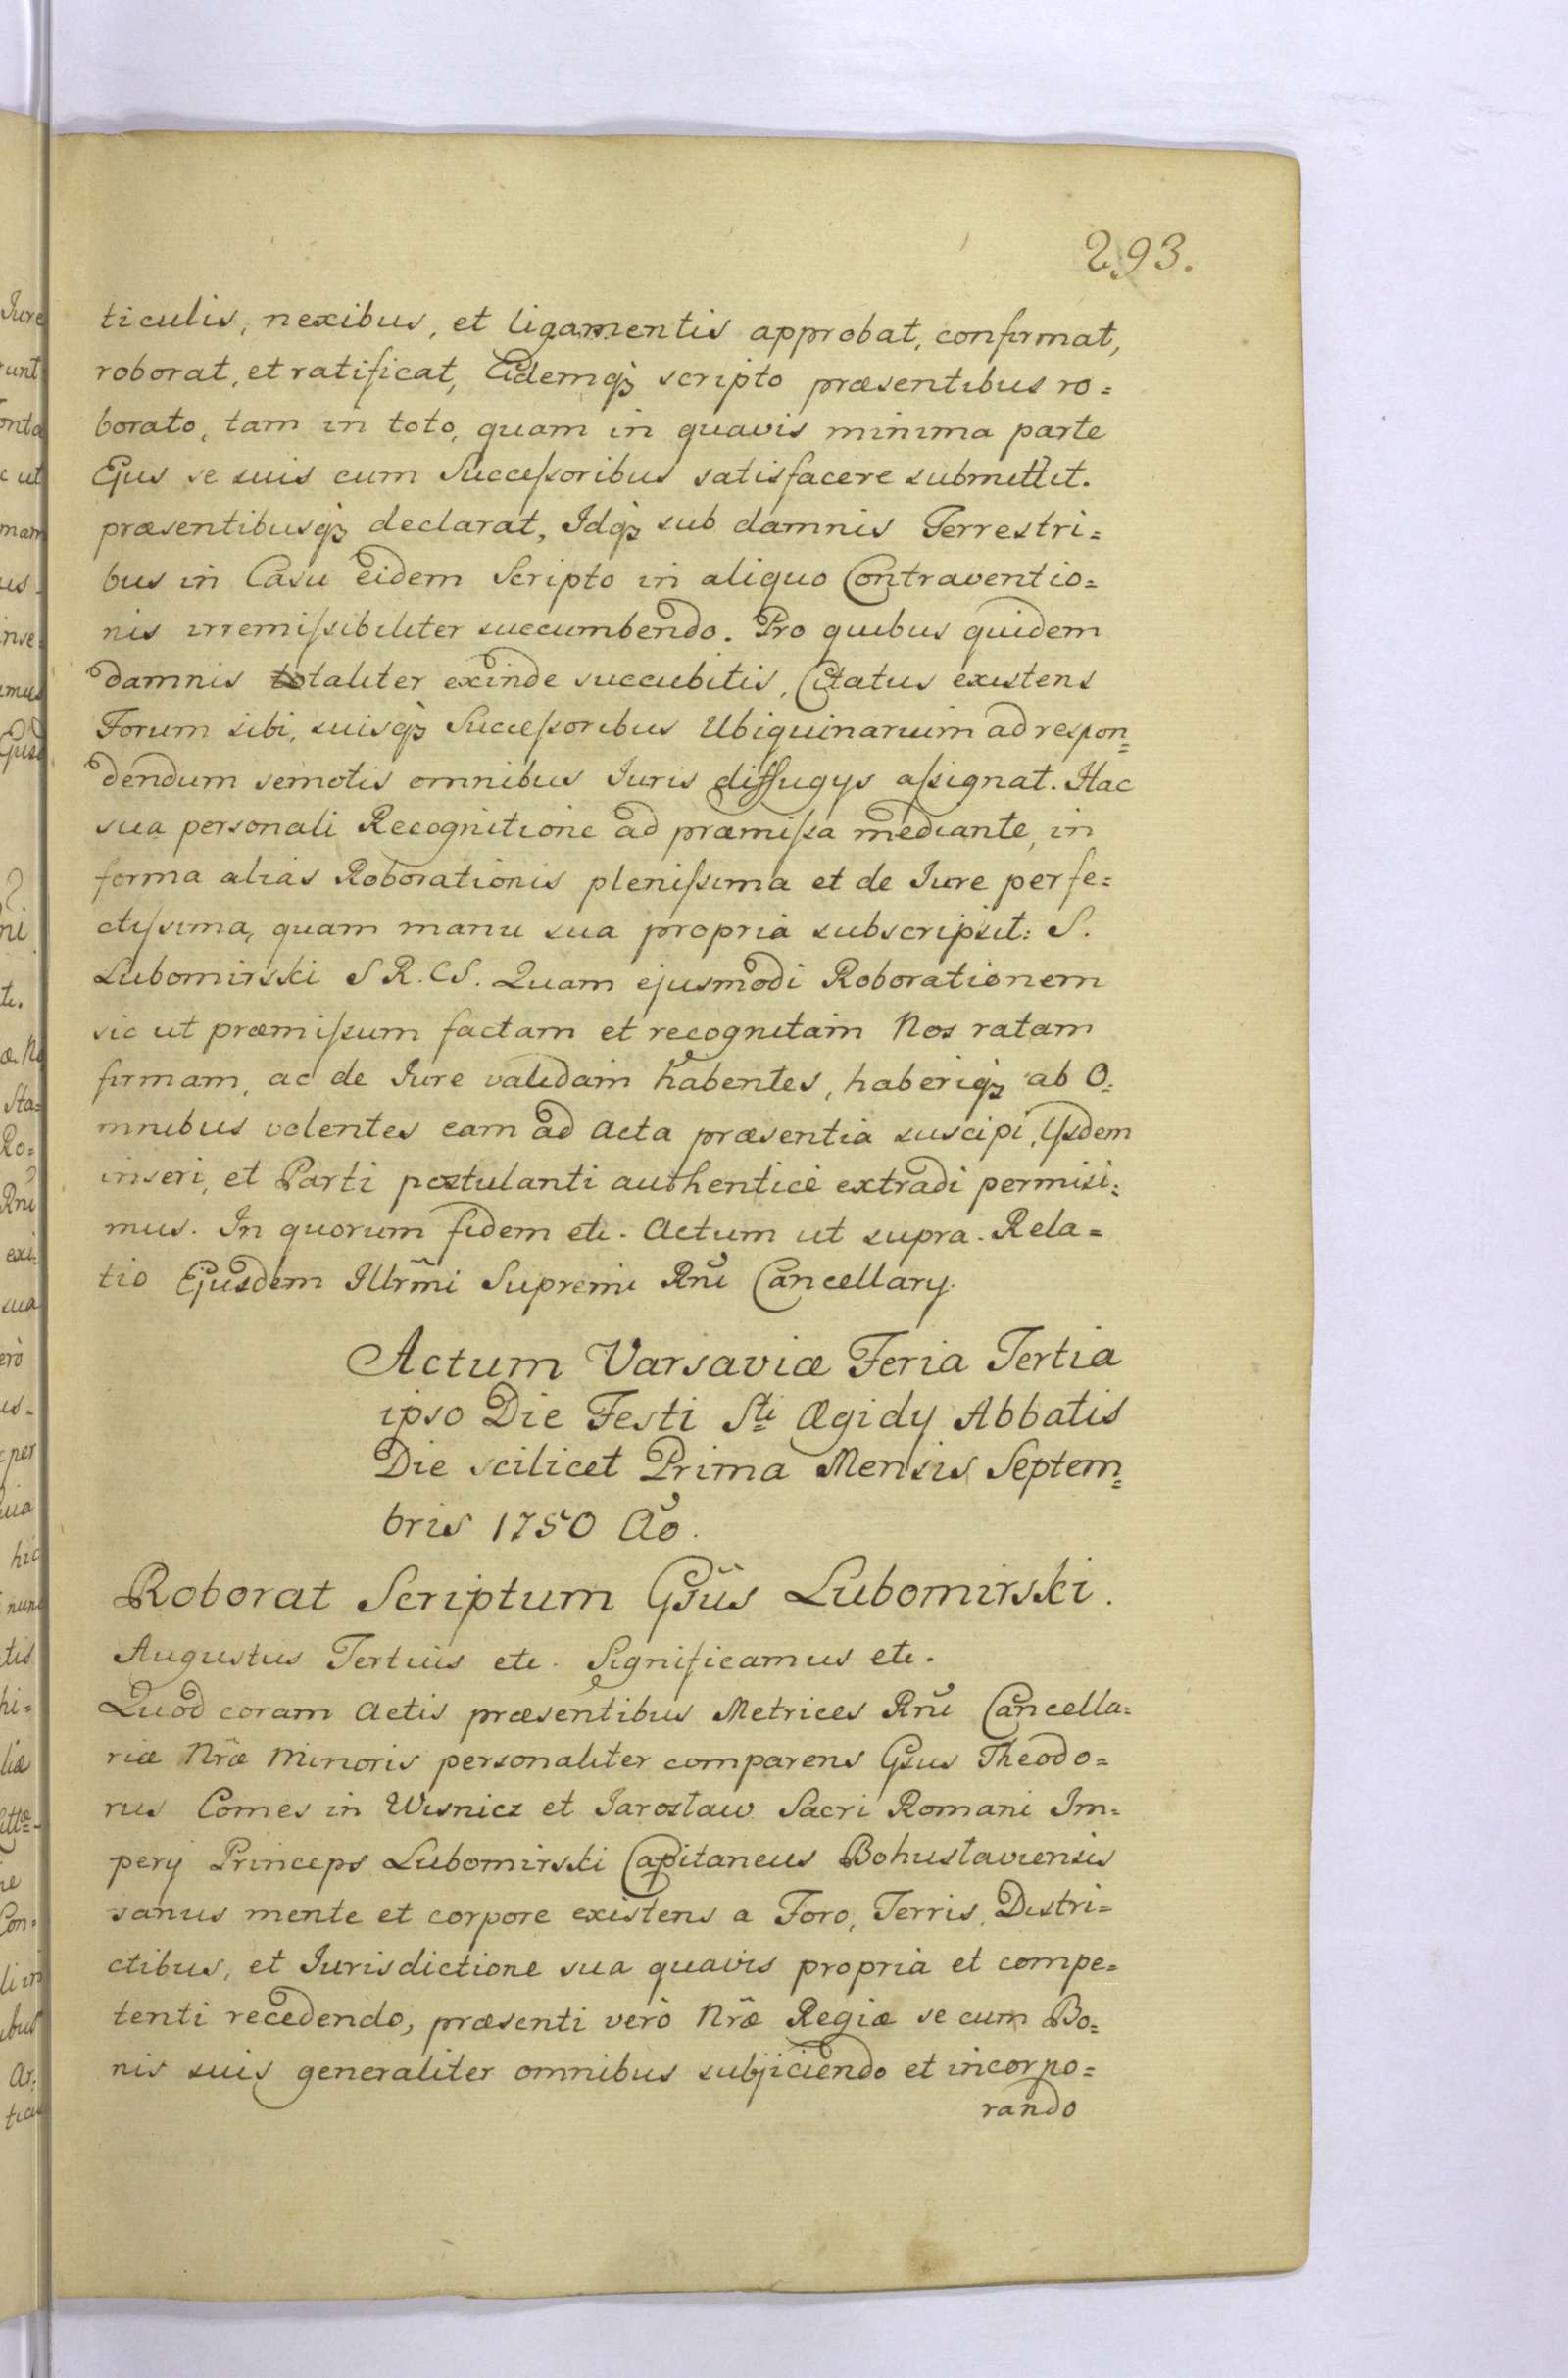 293.
ticulis, nexibus, et ligamentis approbat, confirmat,
roborat, et ratificat, Eidemqꝫ scripto præsentibus ro=
borato, tam in toto, quam in quavis minima parte
Ejus se suis cum Succeſsoribus satisfacere submittit.
præsentibusqꝫ declarat, Idqꝫ sub damnis Terrestri=
bus in Casu eidem Scripto in aliquo Contraventio=
nis irremiſsibiliter succumbendo. Pro quibus quidem
damnis totaliter exinde succubitis, Citatus existens
Forum sibi, suisqꝫ Succeſsoribus Ubiquinarium ad respon=
dendum semotis omnibus Juris diffugys aſsignat. Hac
sua personali Recognitione ad præmiſsa mediante, in
forma alias Roborationis pleniſsima et de Jure perfe=
ctiſsima, quam manu sua propria subscripsit: S.
Lubomirski S R. CS. Quam ejusmodi Roborationem
sic ut præmiſsum factam et recognitam Nos ratam
firmam, ac de Jure validam habentes, haberiqꝫ ab O=
mnibus volentes eam ad Acta præsentia suscipi, Ijsdem
inseri, et Parti postulanti authentice extradi permisi=
mus. In quorum fidem etc. Actum ut supra. Rela=
tio Ejusdem Illr̃mi Supremi Rñi Cancellary.
Actum Varsaviæ Feria Tertia
ipso Die Festi Sti Ægidy Abbatis
Die scilicet Prima Mensis Septem=
bris 1750 Ao.
Roborat Scriptum Gsũs Lubomirski.
Augustus Tertius etc. Significamus etc.
Quod coram Actis præsentibus Metrices Rñi Cancella=
riæ Nr̃æ Minoris personaliter comparens Gsus Theodo=
rus Comes in Wisnicz et Jarosław Sacri Romani Im=
pery Princeps Lubomirski Capitaneus Bohuslaviensis
sanus mente et corpore existens a Foro, Terris, Distri=
ctibus, et Jurisdictione sua quavis propria et compe=
tenti recedendo, præsenti verò Nr̃æ Regiæ se cum Bo=
nis suis generaliter omnibus subjiciendo et incorpo=
rando